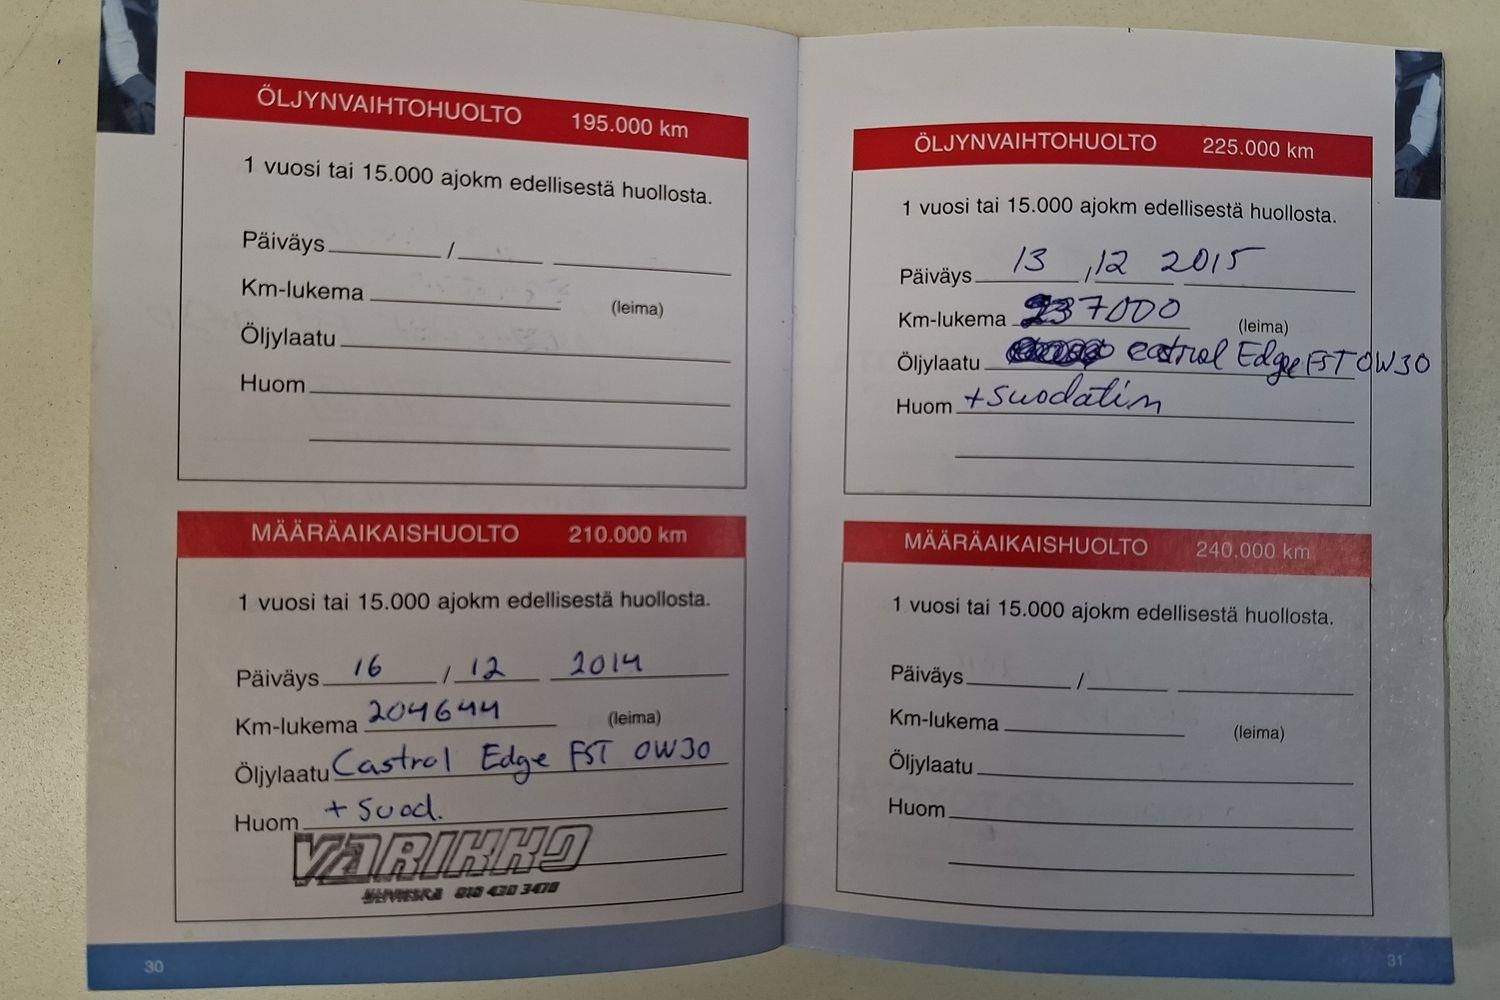 ÖLJYNVAIHTOHUOLTO 195.000 km
1 vuosi tai 15.000 ajokm edellisestä huollosta.
Päiväys /
Km-lukema (leima)
Öljylaatu
Huom
MÄÄRÄAIKAISHUOLTO 210.000 km
1 vuosi tai 15.000 ajokm edellisestä huollosta.
Päiväys 16 / 12 2014
Km-lukema 204644 (leima)
Öljylaatu Castrol Edge FST 0W30
Huom + Suod.
VARIKKO
010 430 3470
30
ÖLJYNVAIHTOHUOLTO 225.000 km
1 vuosi tai 15.000 ajokm edellisestä huollosta.
Päiväys 13 / 12 2015
Km-lukema 237000 (leima)
Öljylaatu castrol Edge FST 0W30
Huom + suodatin
MÄÄRÄAIKAISHUOLTO 240.000 km
1 vuosi tai 15.000 ajokm edellisestä huollosta.
Päiväys /
Km-lukema (leima)
Öljylaatu
Huom
31